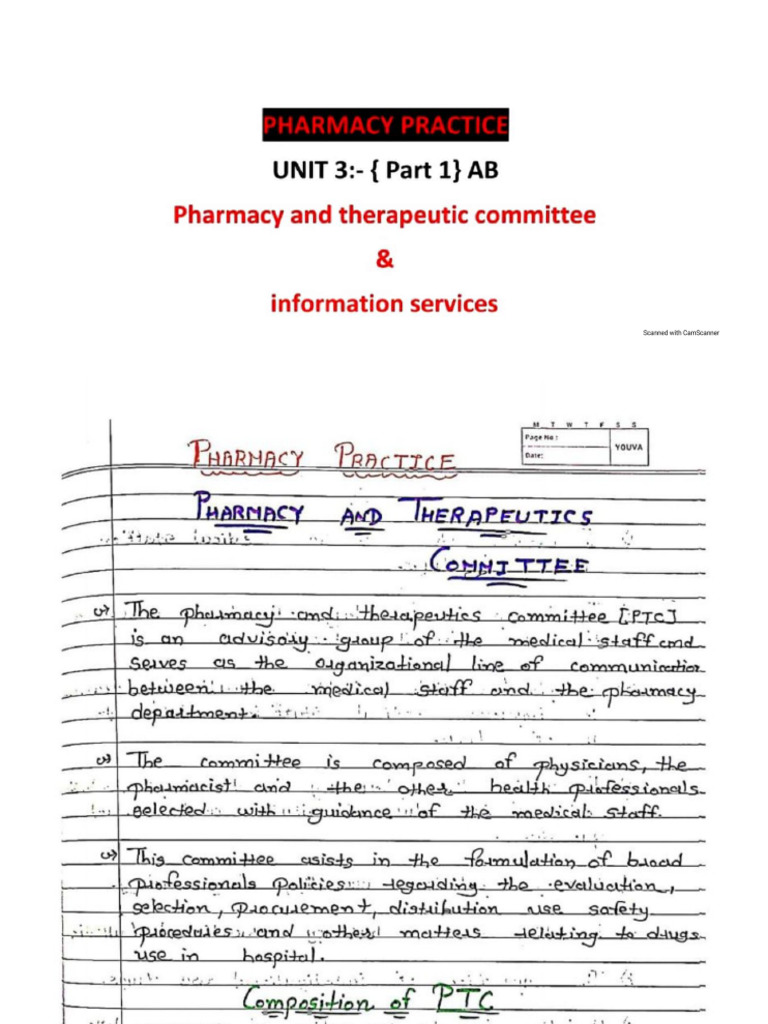 PHARMACY PRACTICE
UNIT 3:- { Part 1} AB
Pharmacy and therapeutic committee
&
information services
Scanned with CamScanner
M T W T F S S
Page No :
YOUVA
Date:
PHARMACY PRACTICE
PHARMACY AND THERAPEUTICS
COMMITTEE
The pharmacy and therapeutics committee [PTC]
is an advisory group of the medical staff and
serves as the organizational line of communication
between the medical staff and the pharmacy
department.
The committee is composed of physicians, the
pharmacist and the other health professionals
selected with guidance of the medical staff.
This committee asists in the formulation of broad
professionals policies regarding the evaluation,
selection, procurement, distribution use safety
procedures and other matters relating to drugs
use in hospital.
Composition of PTC